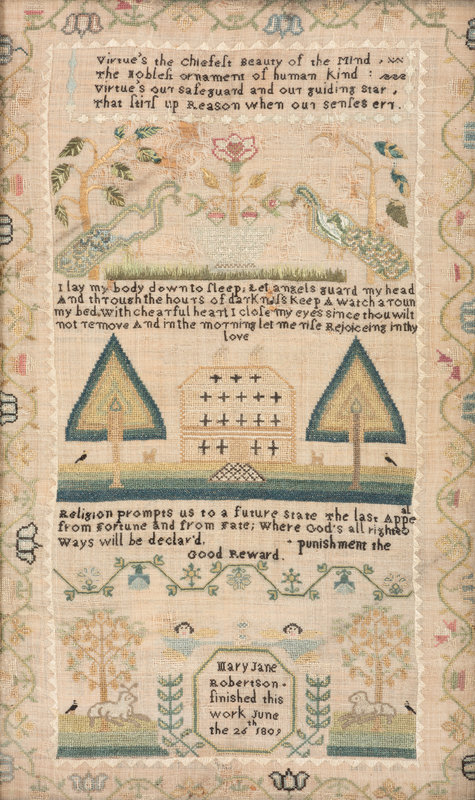 Virtue's the Chiefest Beauty of the Mind,
The Noblest ornament of human kind:
Virtue's our safeguard and our guiding star,
That stirs up Reason when our senses err.
I lay my body down to sleep; Let angels guard my head
And through the hours of darkness Keep A watch aroun
my bed, With chearful heart I close my eyes since thou wilt
not remove And in the morning let me rise Rejoiceing in thy
love
Religion prompts us to a future state The last Appeal
from fortune and from fate; where God's all righteo
Ways will be declar'd. punishment the
Good Reward.
Mary Jane
Robertson.
finished this
work June
the 26th 1809